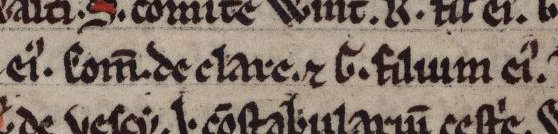 alci. S. comite Wint. R. fil ei.
ei᾽. Com̄. de clare. ⁊ G. filium ei᾽.
de vescy. J. cōstabularium cestr᾽e.